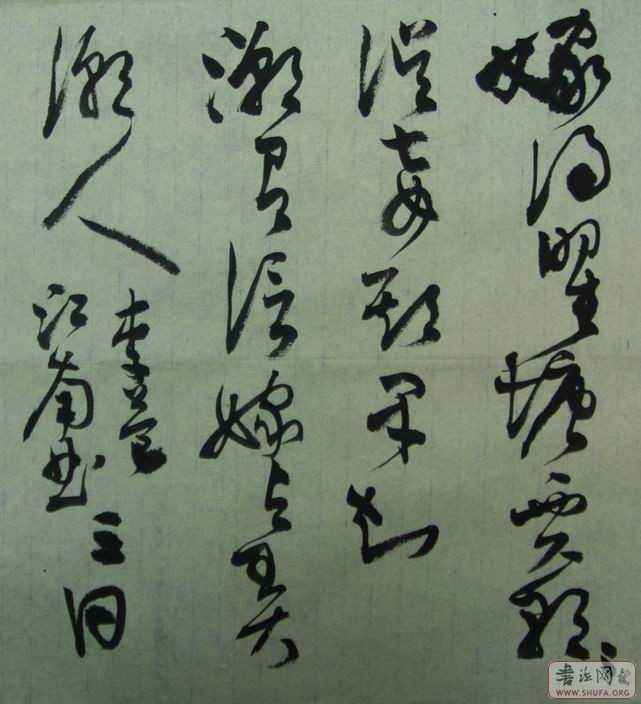 嫁得瞿塘賈朝〻
誤妾期早知
潮有信嫁与弄
潮人
李益
江南曲
書法网
WWW.SHUFA.ORG